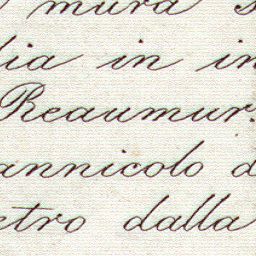 mura s
lia in in
Reaumur.
annicolo d
etro dalla